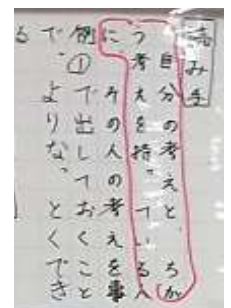 読み手
自分の考えと、ちが
う考えを持っている人
に その人の考えを事
例①で出しておくこと
で、よりな、とくでき
る